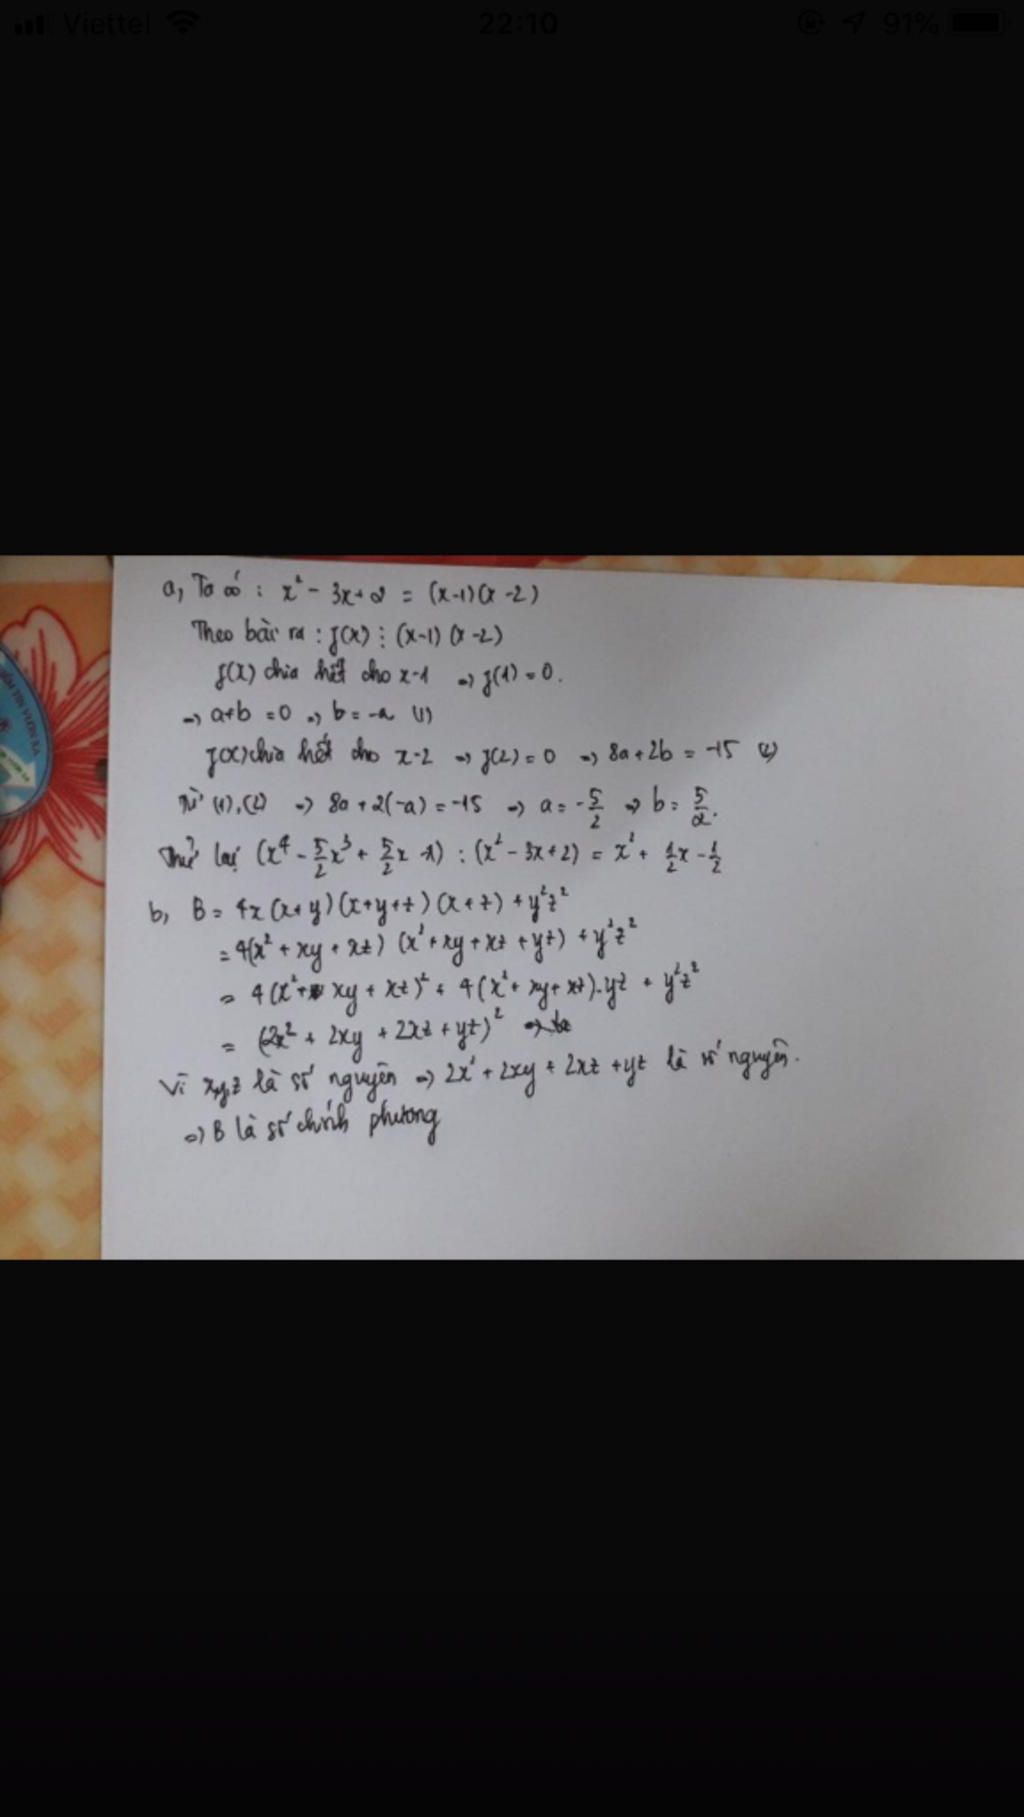 Viettel
22:10
91%
a, Ta có : x² - 3x + 2 = (x-1)(x-2)
Theo bài ra : f(x) ⋮ (x-1)(x-2)
f(x) chia hết cho x-1 => f(1) = 0.
=> a+b = 0 => b = -a (1)
f(x) chia hết cho x-2 => f(2) = 0 => 8a + 2b = -15 (2)
Từ (1), (2) => 8a + 2(-a) = -15 => a = -5/2 => b = 5/2.
Thử lại (x⁴ - 5/2x³ + 5/2x - 1) : (x² - 3x + 2) = x² + 1/2x - 1/2
b, B = 4x(x+y)(x+y+z)(x+z) + y²z²
= 4(x² + xy + xz)(x² + xy + xz + yz) + y²z²
= 4(x² + xy + xz)² + 4(x² + xy + xz).yz + y²z²
= (2x² + 2xy + 2xz + yz)² =>
Vì x,y,z là số nguyên => 2x² + 2xy + 2xz + yz là số nguyên.
=> B là số chính phương